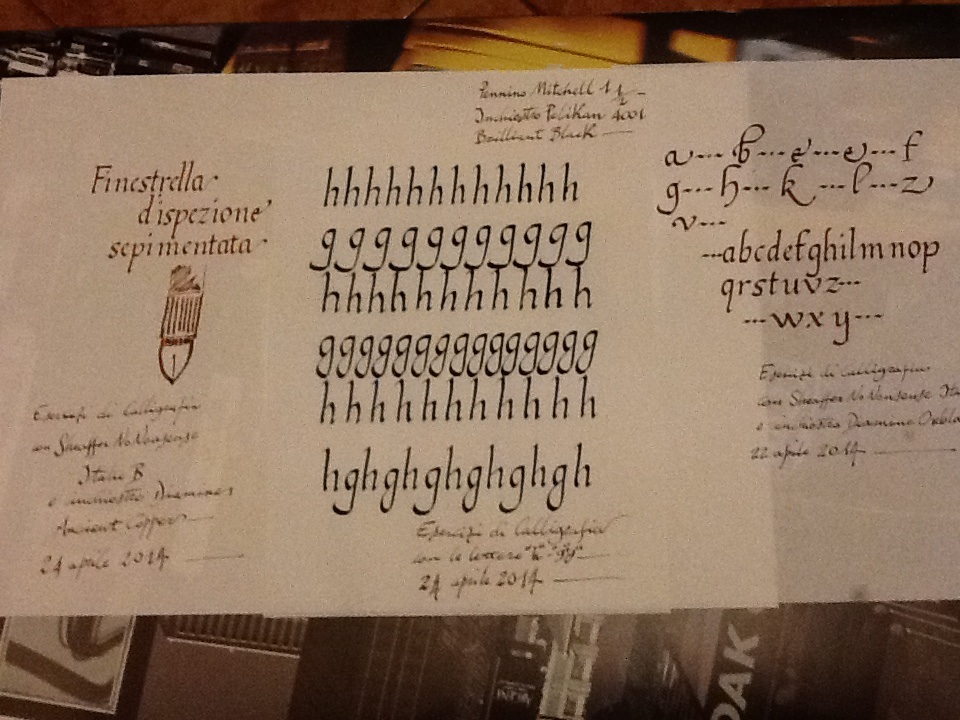 Finestrella
dispezione
sepimentata
Esercizi di Calligrafia
con Sheaffer NoNonsense
Italic B
e inchiostro Diamine
Ancient Copper
24 aprile 2014
Pennino Mitchell 1 1/2
Inchiostro Pelikan 4001
Brilliant Black
hhhhhhhhhhhh
ggggggggggg
hhhhhhhhhhh
ggggggggggggggg
hhhhhhhhhhh
hghghghghgh
Esercizi di Calligrafia
con le lettere "h"
24 aprile 2014
a---b---e---e---f
g---h---k---l---z
v---
---abcdefghilmnop
qrstuvz---
---wxy---
Esercizi di Calligrafia
con Sheaffer NoNonsense Ita
e inchiostro Diamine Oxblo
22 aprile 2014
DAK